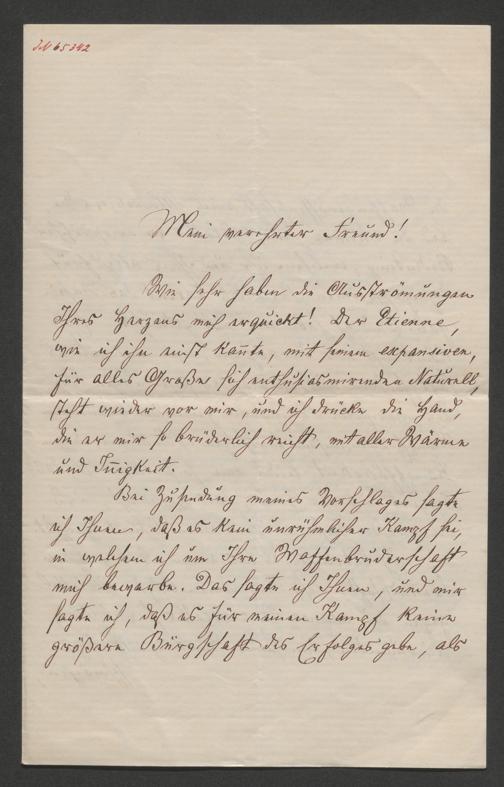 J.N 65342
Mein verehrter Freund!
Wie sehr haben die Ausströmungen
Ihres Herzens mich erquickt! Der Etienne,
wie ich ihn einst kannte, mit seinem expansiven,
für alles Große sich enthusiasmirenden Naturell,
steht wieder vor mir, und ich drücke die Hand,
die er mir so brüderlich reicht, mit aller Wärme
und Innigkeit.
Bei Zusendung meines Vorschlages sagte
ich Ihnen, daß es kein unrühmlicher Kampf sei,
in welchem ich um Ihre Waffenbruderschaft
mich bewarbe. Das sagte ich Ihnen, und mir
sagte ich, daß es für meinen Kampf keine
größere Bürgschaft des Erfolges gebe, als